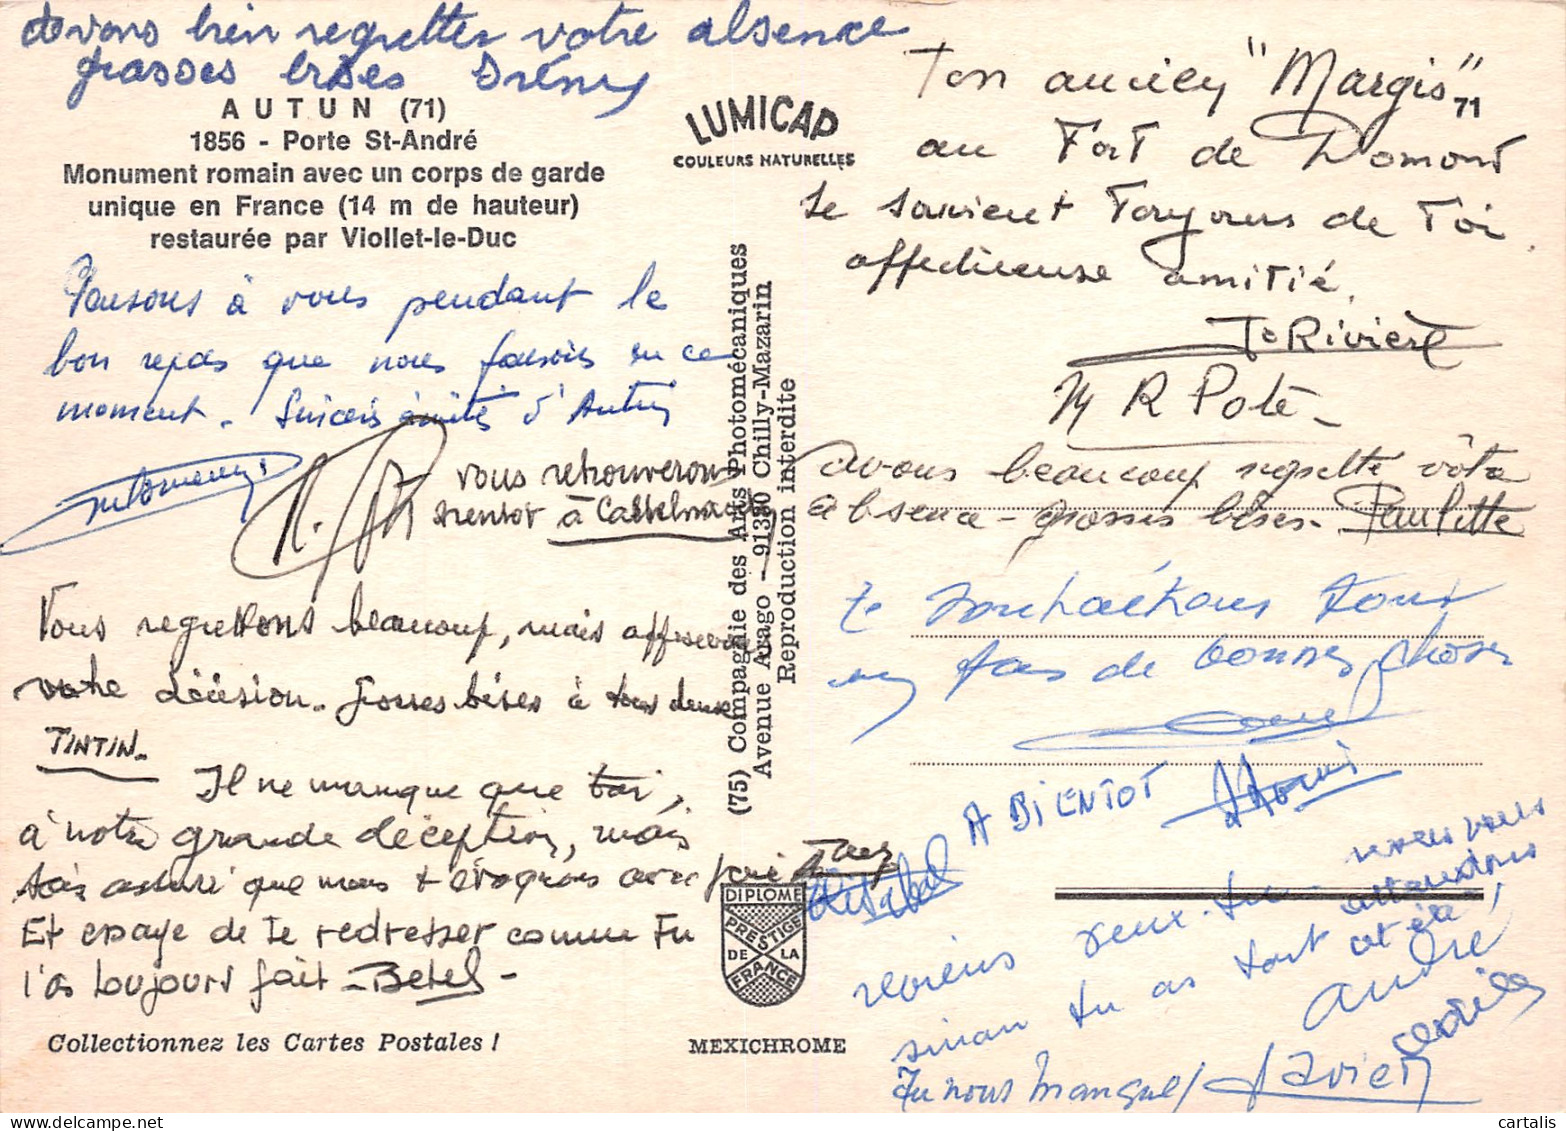 avons bien regretter votre absence
grosses bises
AUTUN (71)
1856 - Porte St-André
Monument romain avec un corps de garde
unique en France (14 m de hauteur)
restaurée par Viollet-le-Duc
LUMICAP
COULEURS NATURELLES
Pensons à vous pendant le
bon repas que nous faisons en ce
moment. Sincère amitié d'Autun
vous retrouverons
bientôt à Castelnau
Vous regrettons beaucoup, mais
votre décision. Grosses bises à tous deux
TINTIN.
Il ne manque que toi,
à notre grande déception, mais
sois assuré que nous t'évoquons avec joie
Et essaye de te redresser comme Tu
l'as toujours fait - Bebel -
Collectionnez les Cartes Postales !
(75) Compagnie des Arts Photomécaniques
Avenue Arago - 91380 Chilly-Mazarin
Reproduction interdite
DIPLOME
PRESTIGE
DE LA
FRANCE
MEXICHROME
Ton ancien "Margis" 71
au Fort de Domont
se souvient Toujours de Toi
affectueuse amitié.
Rivière
M R Pote
avons beaucoup regretté votre
absence - grosses bises - Paulette
Te souhaitons tous
un tas de bonnes choses
A BIENTOT
reviens veux-tu nous vous
attendons
sinon tu as tort cet été !
André
Tu nous manques ! Xavier